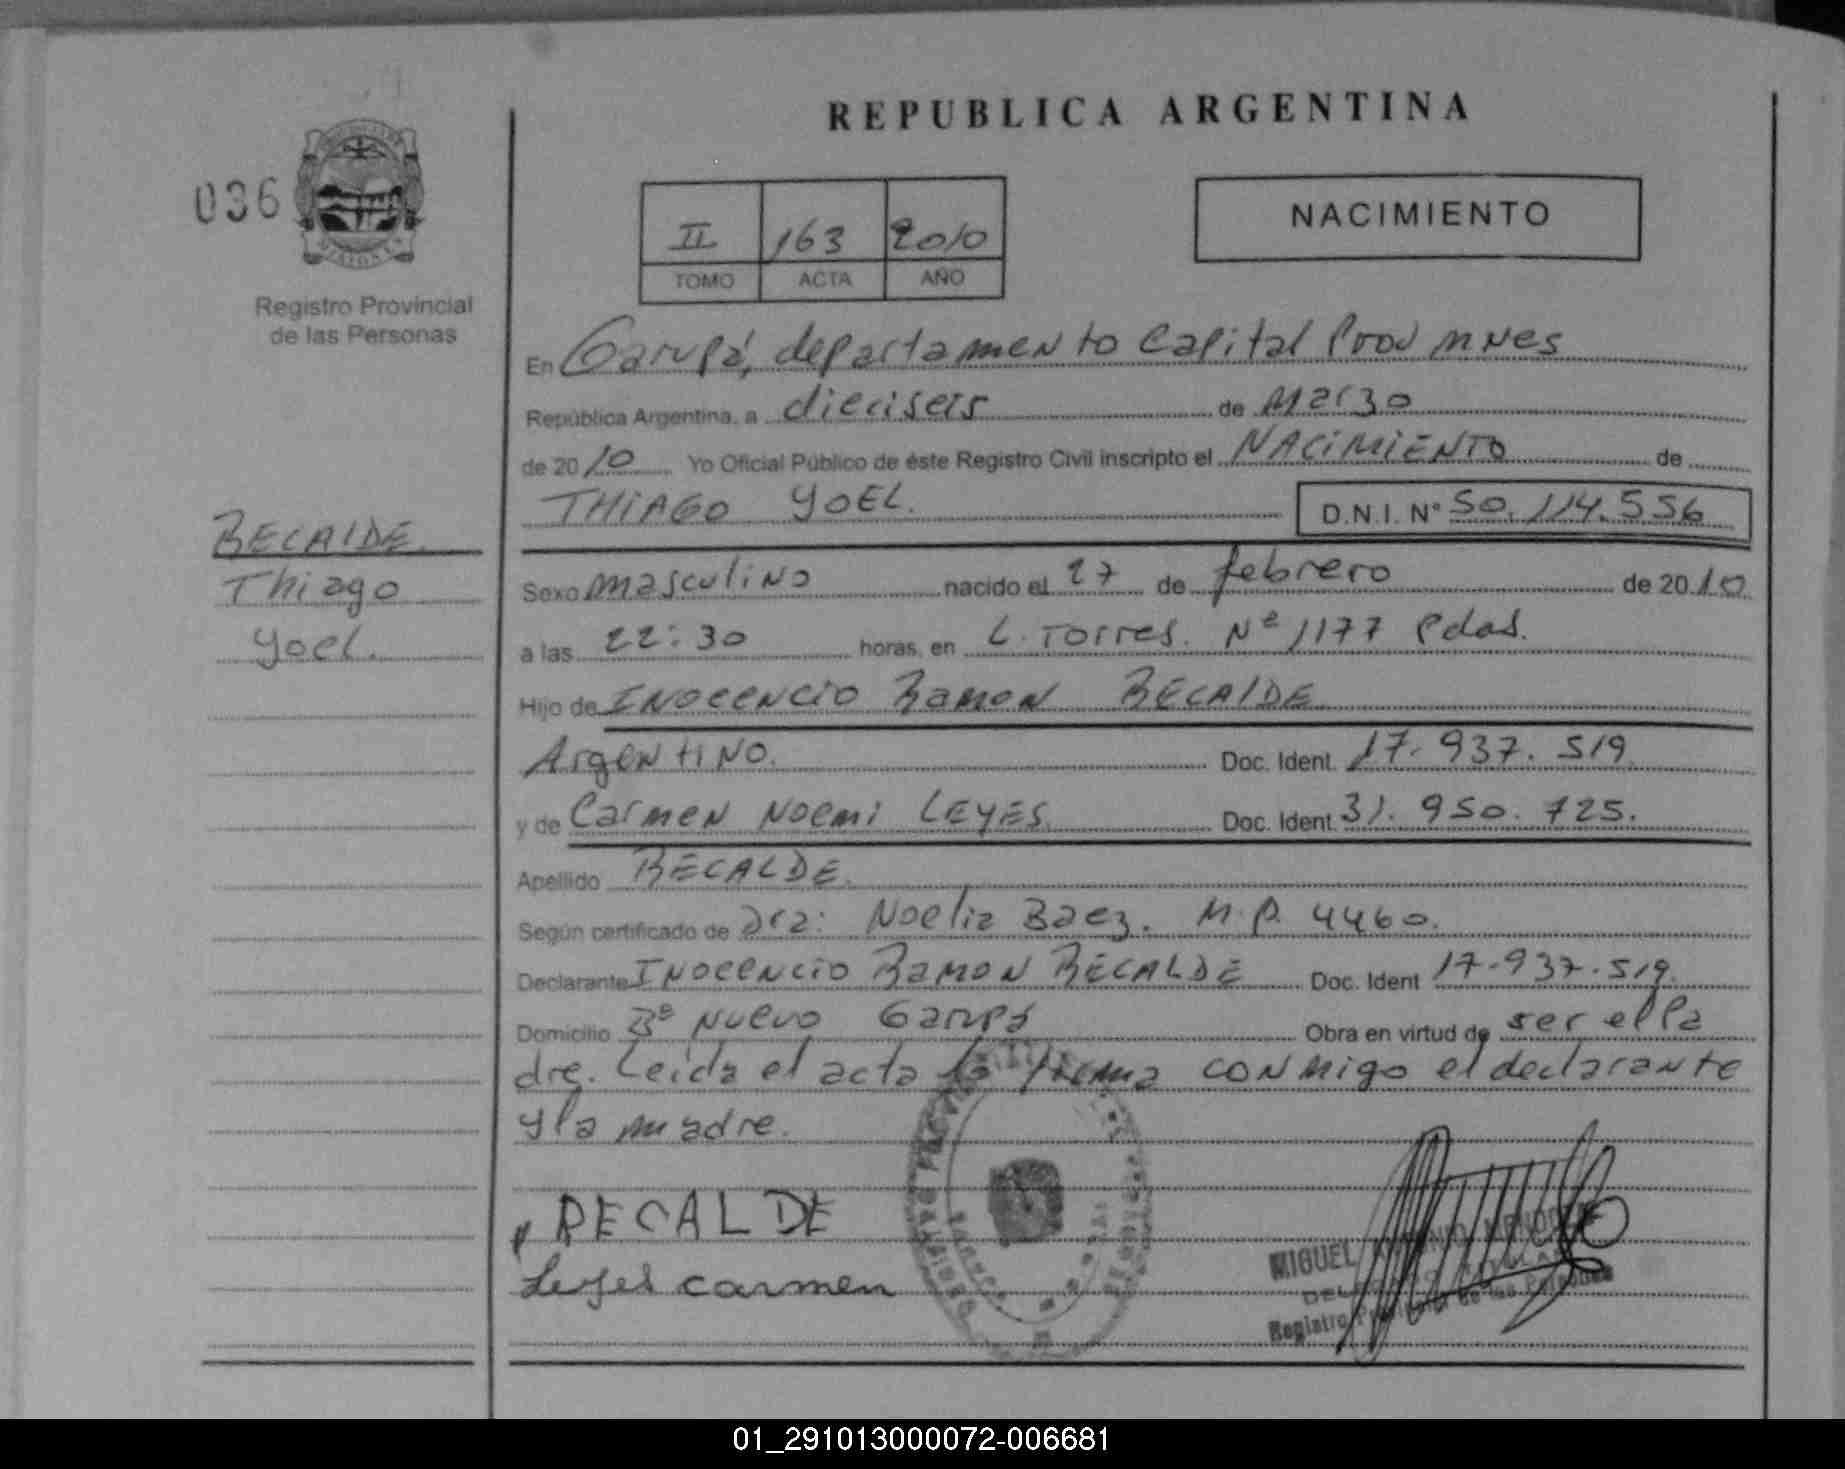 REPUBLICA ARGENTINA
036
II 163 2010
TOMO ACTA AÑO
NACIMIENTO
Registro Provincial
de las Personas
En Garupá, departamento Capital Prov Mnes
República Argentina, a dieciseis de Marzo
de 2010 Yo Oficial Público de éste Registro Civil inscripto el NACIMIENTO de
THIAGO YOEL. D.N.I. N° 50.114.556
RECALDE.
Thiago
Yoel.
Sexo masculino nacido el 27 de febrero de 2010
a las 22:30 horas, en L. Torres. Nº 1177 Pdas.
Hijo de INOCENCIO RAMON RECALDE
Argentino. Doc. Ident. 17.937.519
y de Carmen Noemi LEYES. Doc. Ident. 31.950.725.
Apellido RECALDE.
Según certificado de Dra: Noelia Baez. M.P. 4460.
Declarante INOCENCIO RAMON RECALDE Doc. Ident 17.937.519.
Domicilio Bº Nuevo Garupá Obra en virtud de ser el Pa
dre. Leída el acta la firma conmigo el declarante
y la madre.
RECALDE
Leyes carmen
MIGUEL
Registro Provincial de las Personas
01_291013000072-006681